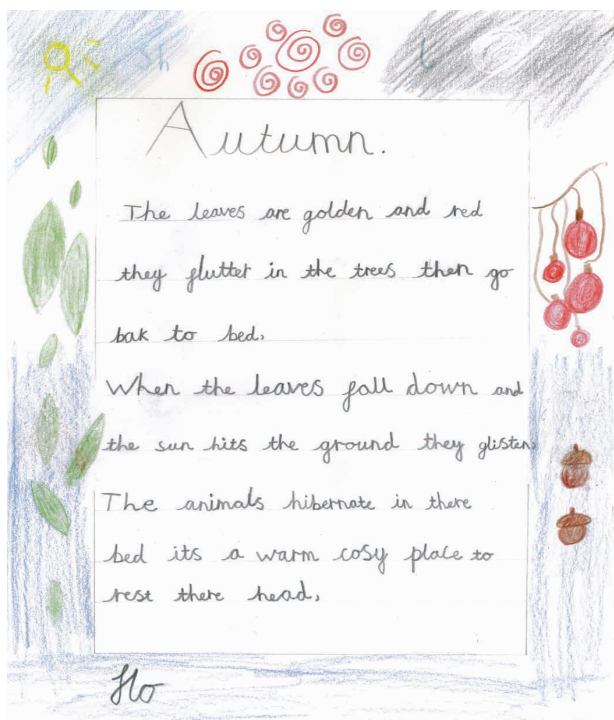 Autumn.
The leaves are golden and red
they flutter in the trees then go
bak to bed,
When the leaves fall down and
the sun hits the ground they glisten,
The animals hibernate in there
bed its a warm cosy place to
rest there head,
Flo